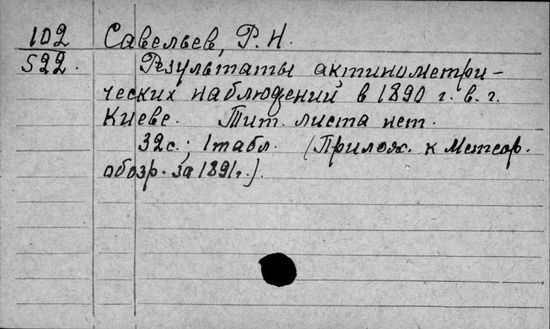 102 Савельев, Р. Н.
522. Результаты актинометри-
ческих наблюдений в 1890 г. в. г.
Киеве. Тит. листа нет.
32с.; 1табл. (Прилож. к Метеор.
обозр. за 1891г.).